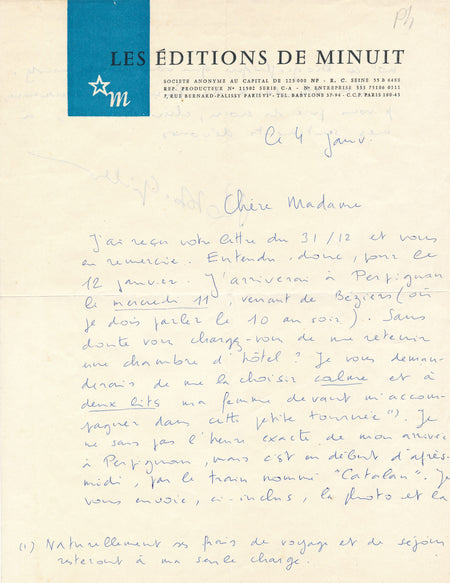 Ph
LES ÉDITIONS DE MINUIT
m
SOCIÉTÉ ANONYME AU CAPITAL DE 125000 NP - R. C. SEINE 55 B 6488
REP. PRODUCTEUR N° 11502 SERIE C-A - N° ENTREPRISE 555 75106 0111
7, RUE BERNARD-PALISSY PARIS VIe - TEL. BABYLONE 37-94 - C.C.P. PARIS 180-43
Ce 4 janv.
Chère Madame
J'ai reçu votre lettre du 31/12 et vous
en remercie. Entendu donc, pour le
12 janvier. J'arriverai à Perpignan
le mercredi 11, venant de Béziers (où
je dois parler le 10 au soir). Sans
doute vous chargez-vous de me retenir
une chambre d'hôtel? Je vous deman-
derais de me la choisir calme et à
deux lits ma femme devant m'accom-
pagner dans cette petite tournée (1). Je
ne sais pas l'heure exacte de mon arrivée
à Perpignan, mais c'est en début d'après-
midi, par le train nommé "Catalan". Je
vous envoie, ci-inclus, la photo et la
(1) Naturellement ses frais de voyage et de séjour
resteront à ma seule charge.